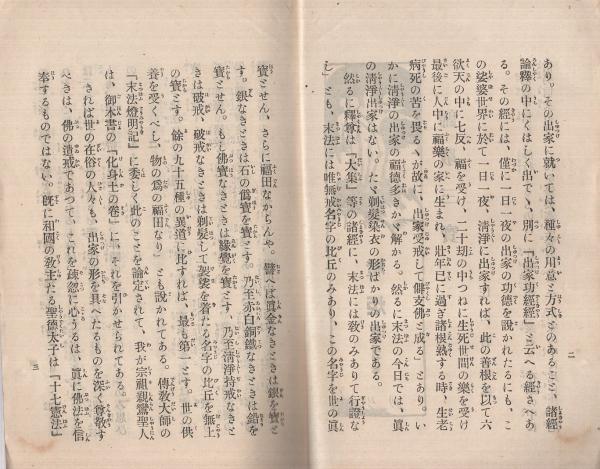 あり。その出家に就いては、種々の用意と方式とのあること、諸經
論釋の中にくはしく出で、別に「出家功經經」と云へる經さへあ
る。その經には、僅に一日一夜の出家の功德を說かれたるにも、こ
の娑婆世界に於て一日一夜、淸淨に出家すれば、此の善根を以て六
欲天の中に七反、福を受け、二十劫の中つねに生死世間の樂を受け
最後に人中に福樂の家に生まれ、壯年已に過ぎ諸根熟する時、生老
病死の苦を畏るゝが故に、出家受戒して辟支佛と成る」とあり。い
かに淸淨の出家の福德多きかゞ解かる。然るに末法の今日では、眞
の淸淨出家はない。たゞ剃髮染衣の形ばかりの出家である。
然るに釋尊は「大集」等の諸經に、末法には敎のみありて行證な
し」とも、末法には唯無戒名字の比丘のみあり、この名字を世の眞
二
寶とせん、さらに福田なからんや。譬へば眞金なきときは銀を寶と
す。銀なきときは石の僞寶を寶とす。乃至赤白銅鐵なきときは鉛を
寶とせん。もし佛寶なきときは緣覺を寶とす、乃至淸淨持戒なきと
きは破戒、破戒なきときは剃髮して袈裟を着たる名字の比丘を無上
の寶とす。餘の九十五種の異道に比すれば、最も第一とす。世の供
養を受くべし、物の爲の福田なり」とも說かれてある。傳敎大師の
「末法燈明記」に委しく此のことを論定されて、我が宗祖親鸞聖人
は、御本書の「化身土の卷」に、それを引かせられてある。
されば世の在俗の人々も、出家の形を具へたるものを深く尊敬す
べきは、佛の遺戒であつて、これを疎忽に心うるは、眞に佛法を信
奉するものではない。旣に和國の敎主たる聖德太子は「十七憲法」
三